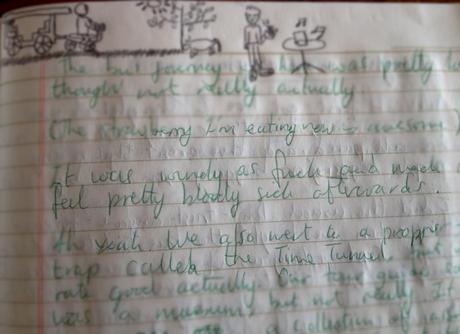 The bus journey was pretty
thought not really actually
(The strawberry I'm eating now is awesome)
It was windy as fuck and made
feel pretty bloody sick afterwards.
Ah yeah. We also went to a propper
trap called the Time Tunnel but
rate good actually. Our tour guide
was a museum but not really. It
collection of